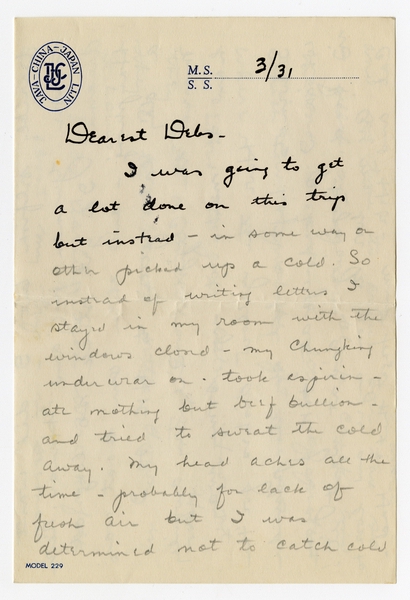 JAVA-CHINA-JAPAN LIJN
JCJL
M.S. 3/31
S.S.
Dearest Debs-
I was going to get
a lot done on this trip
but instead - in some way or
other picked up a cold. So
instead of writing letters I
stayd in my room with the
windows closed - my Chungking
underwear on - took aspirin -
ate nothing but beef bullion -
and tried to sweat the cold
away. My head aches all the
time - probably for lack of
fresh air but I was
determined not to catch cold
MODEL 229